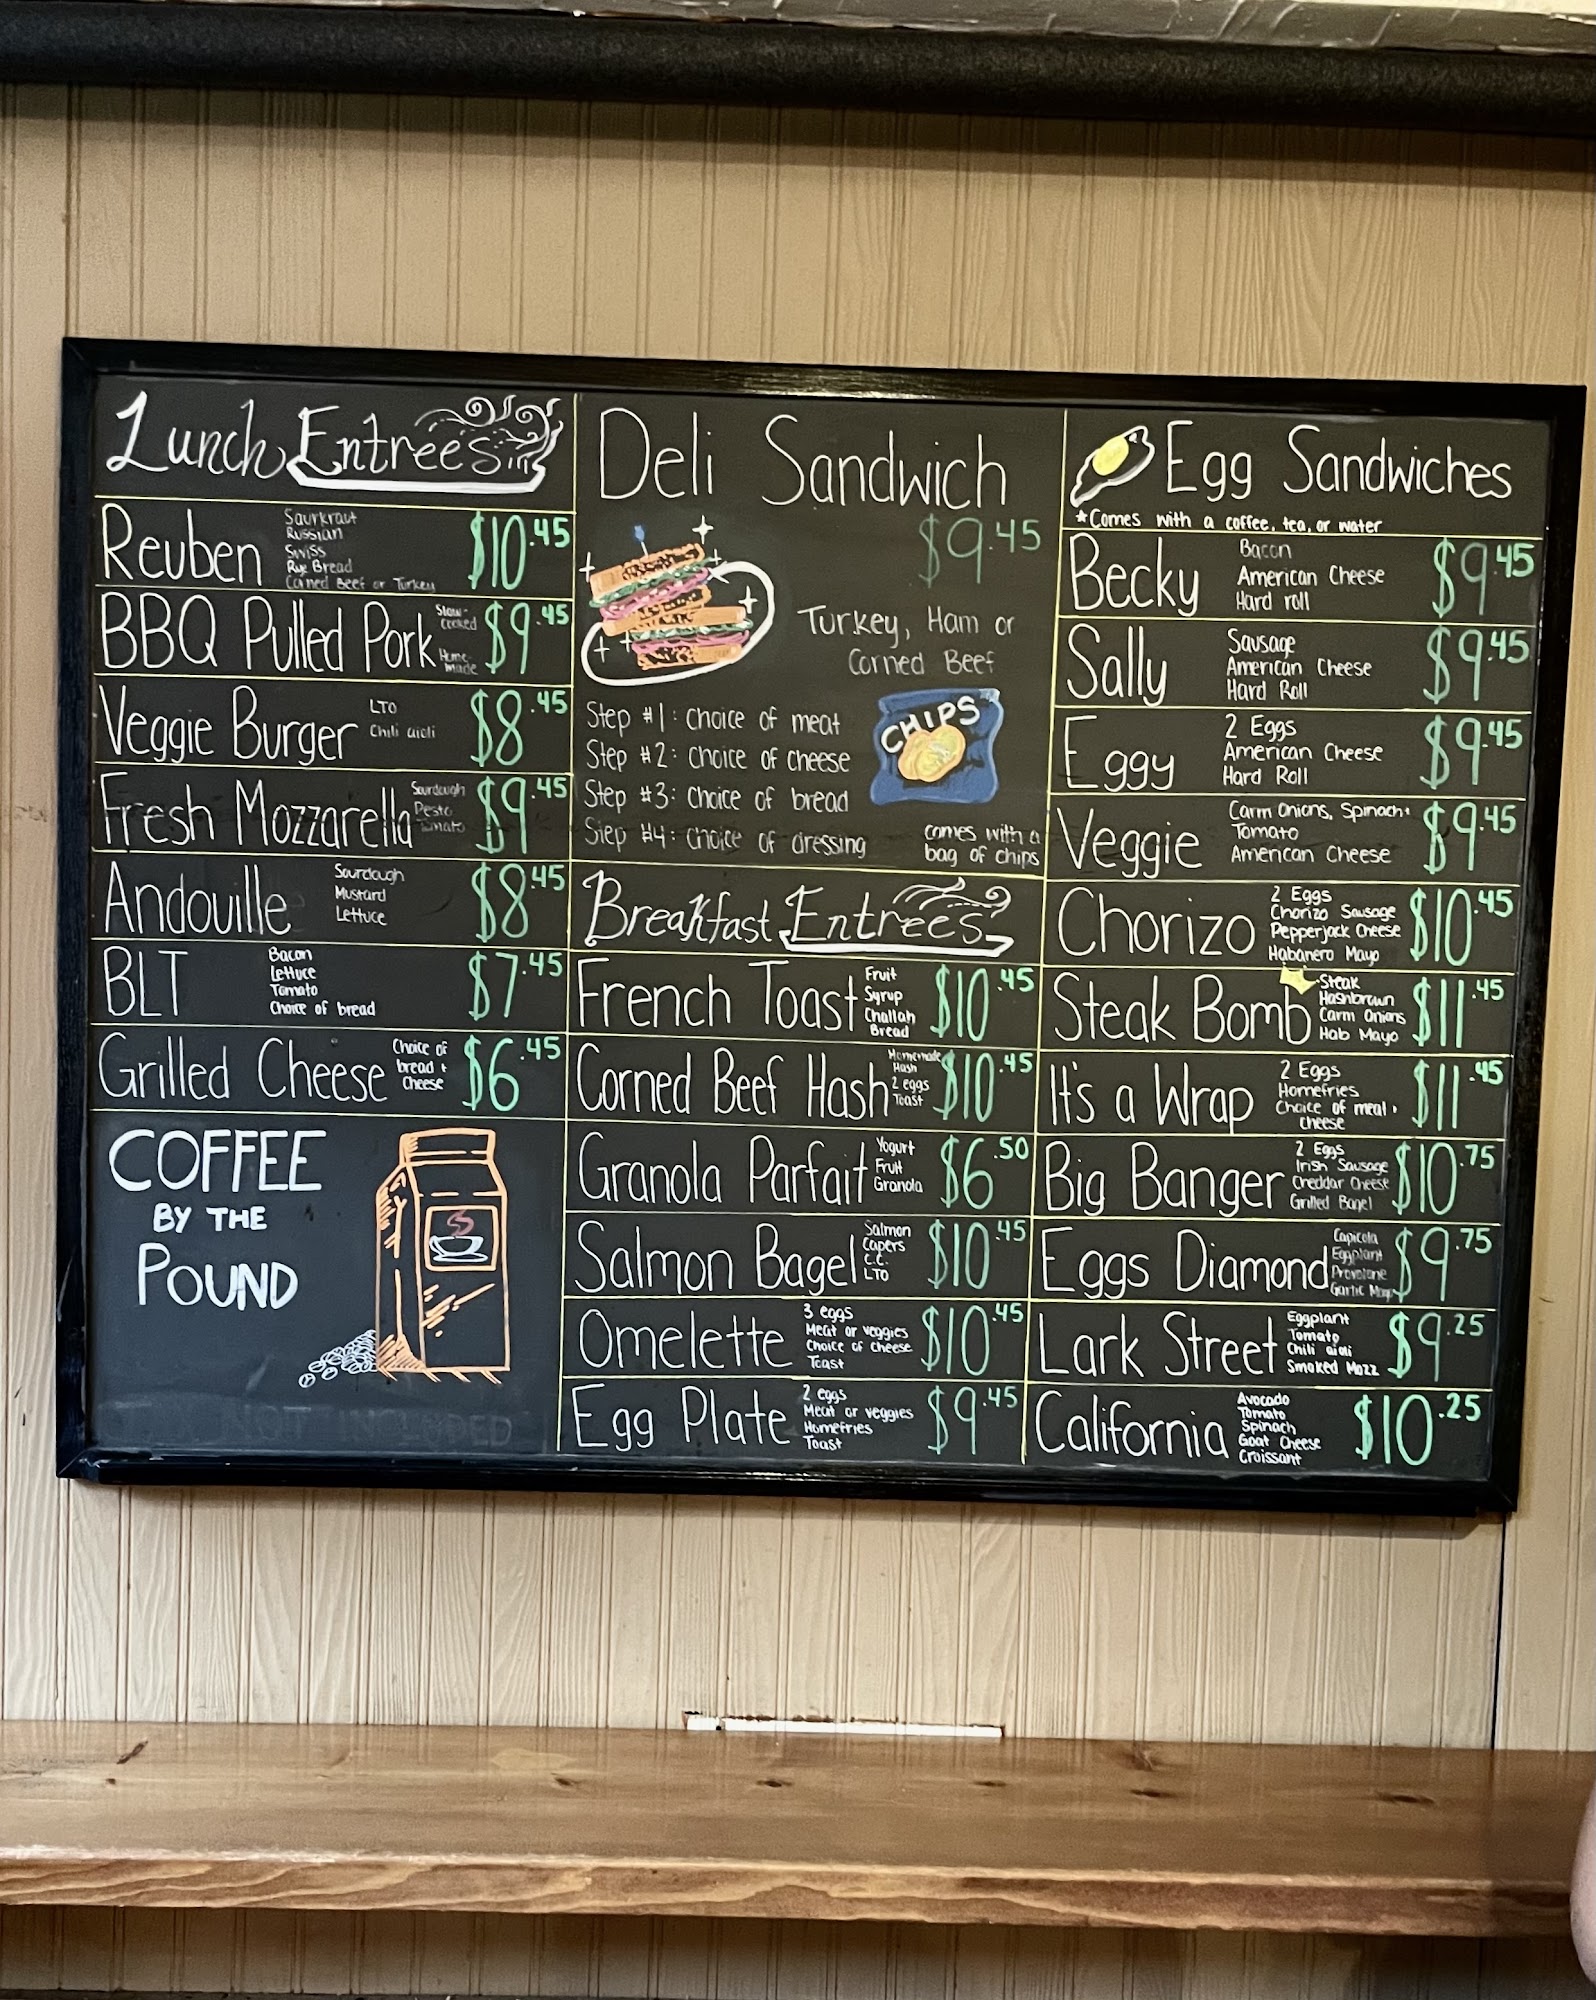 Lunch Entrees
Reuben
Saurkraut
Russian
Swiss
Rye Bread
Corned Beef or Turkey
$10.45
BBQ Pulled Pork
Slow-
cooked
Home-
made
$9.45
Veggie Burger
LTO
Chili aioli
$8.45
Fresh Mozzarella
Sourdough
Pesto
Tomato
$9.45
Andouille
Sourdough
Mustard
Lettuce
$8.45
BLT
Bacon
Lettuce
Tomato
Choice of bread
$7.45
Grilled Cheese
Choice of
bread +
Cheese
$6.45
COFFEE
BY THE
POUND
NOT INCLUDED
Deli Sandwich
$9.45
Turkey, Ham or
Corned Beef
Step #1: choice of meat
Step #2: choice of cheese
Step #3: choice of bread
Step #4: choice of dressing
CHIPS
comes with a
bag of chips
Breakfast Entrees
French Toast
Fruit
Syrup
Challah
Bread
$10.45
Corned Beef Hash
Homemade
Hash
2 eggs
Toast
$10.45
Granola Parfait
Yogurt
Fruit
Granola
$6.50
Salmon Bagel
Salmon
Capers
C.C.
LTO
$10.45
Omelette
3 eggs
Meat or veggies
Choice of cheese
Toast
$10.45
Egg Plate
2 eggs
Meat or veggies
Homefries
Toast
$9.45
Egg Sandwiches
*Comes with a coffee, tea, or water
Becky
Bacon
American Cheese
Hard roll
$9.45
Sally
Sausage
American Cheese
Hard Roll
$9.45
Eggy
2 Eggs
American Cheese
Hard Roll
$9.45
Veggie
Carm Onions, Spinach+
Tomato
American Cheese
$9.45
Chorizo
2 Eggs
Chorizo Sausage
Pepperjack Cheese
Habanero Mayo
$10.45
Steak Bomb
Steak
Hashbrown
Carm Onions
Hab Mayo
$11.45
It's a Wrap
2 Eggs
Homefries
Choice of meat +
cheese
$11.45
Big Banger
2 Eggs
Irish Sausage
Cheddar Cheese
Grilled Bagel
$10.75
Eggs Diamond
Capicola
Eggplant
Provolone
Garlic Mayo
$9.75
Lark Street
Eggplant
Tomato
Chili aioli
Smoked Mozz
$9.25
California
Avocado
Tomato
Spinach
Goat Cheese
Croissant
$10.25